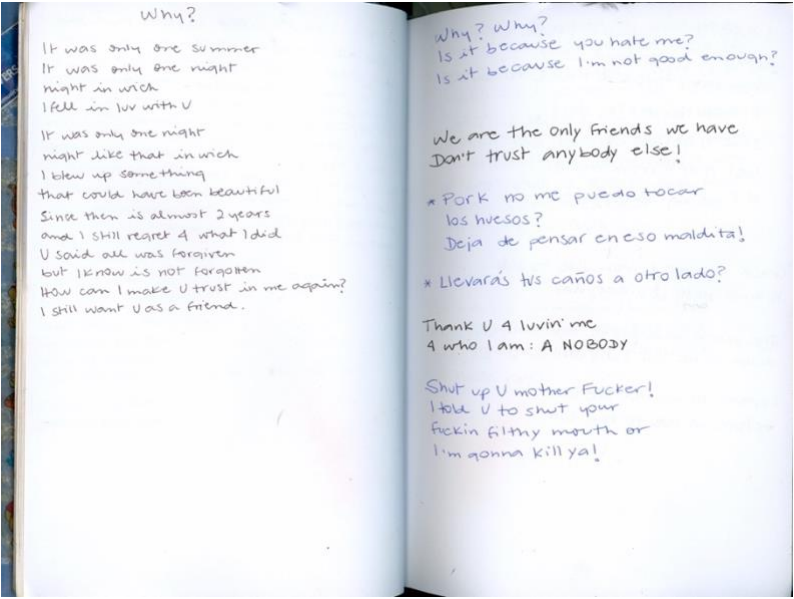 Why?
It was only one summer
It was only one night
night in wich
I fell in luv with U
It was only one night
night like that in wich
I blew up something
that could have been beautiful
Since then is almost 2 years
and I still regret 4 what I did
U said all was forgiven
but I know is not forgotten
How can I make U trust in me again?
I still want U as a friend.
Why? Why?
Is it because you hate me?
Is it because I'm not good enough?
We are the only friends we have
Don't trust anybody else!
* Pork no me puedo tocar
los huesos?
Deja de pensar en eso maldita!
* Llevarás tus caños a otro lado?
Thank U 4 luvin' me
4 who I am: A NOBODY
Shut up U mother Fucker!
I told U to shut your
fuckin filthy mouth or
I'm gonna kill ya!